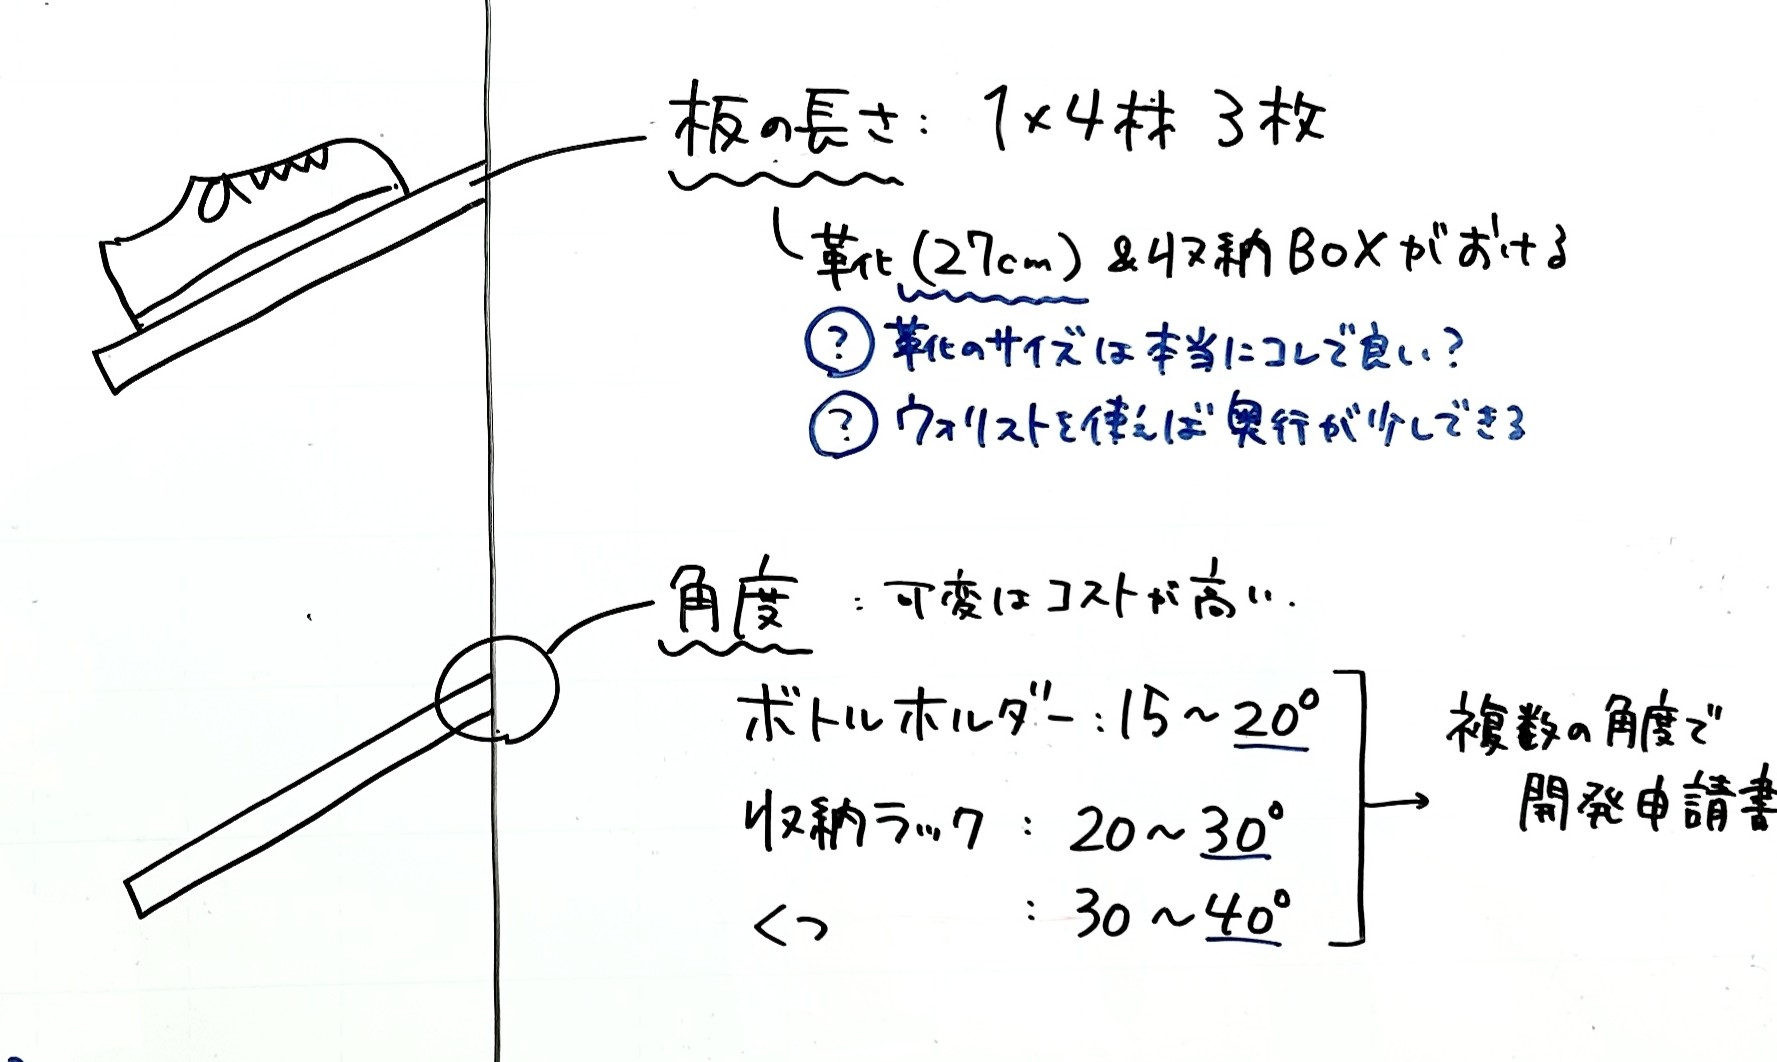 板の長さ: 1×4材 3枚
革靴(27cm)&収納BOXがおける
? 革靴のサイズは本当にコレで良い?
? ウォリストを使えば奥行が少しできる
角度 : 可変はコストが高い.
ボトルホルダー:15~20°
収納ラック : 20~30°
くつ : 30~40°
複数の角度で
開発申請書